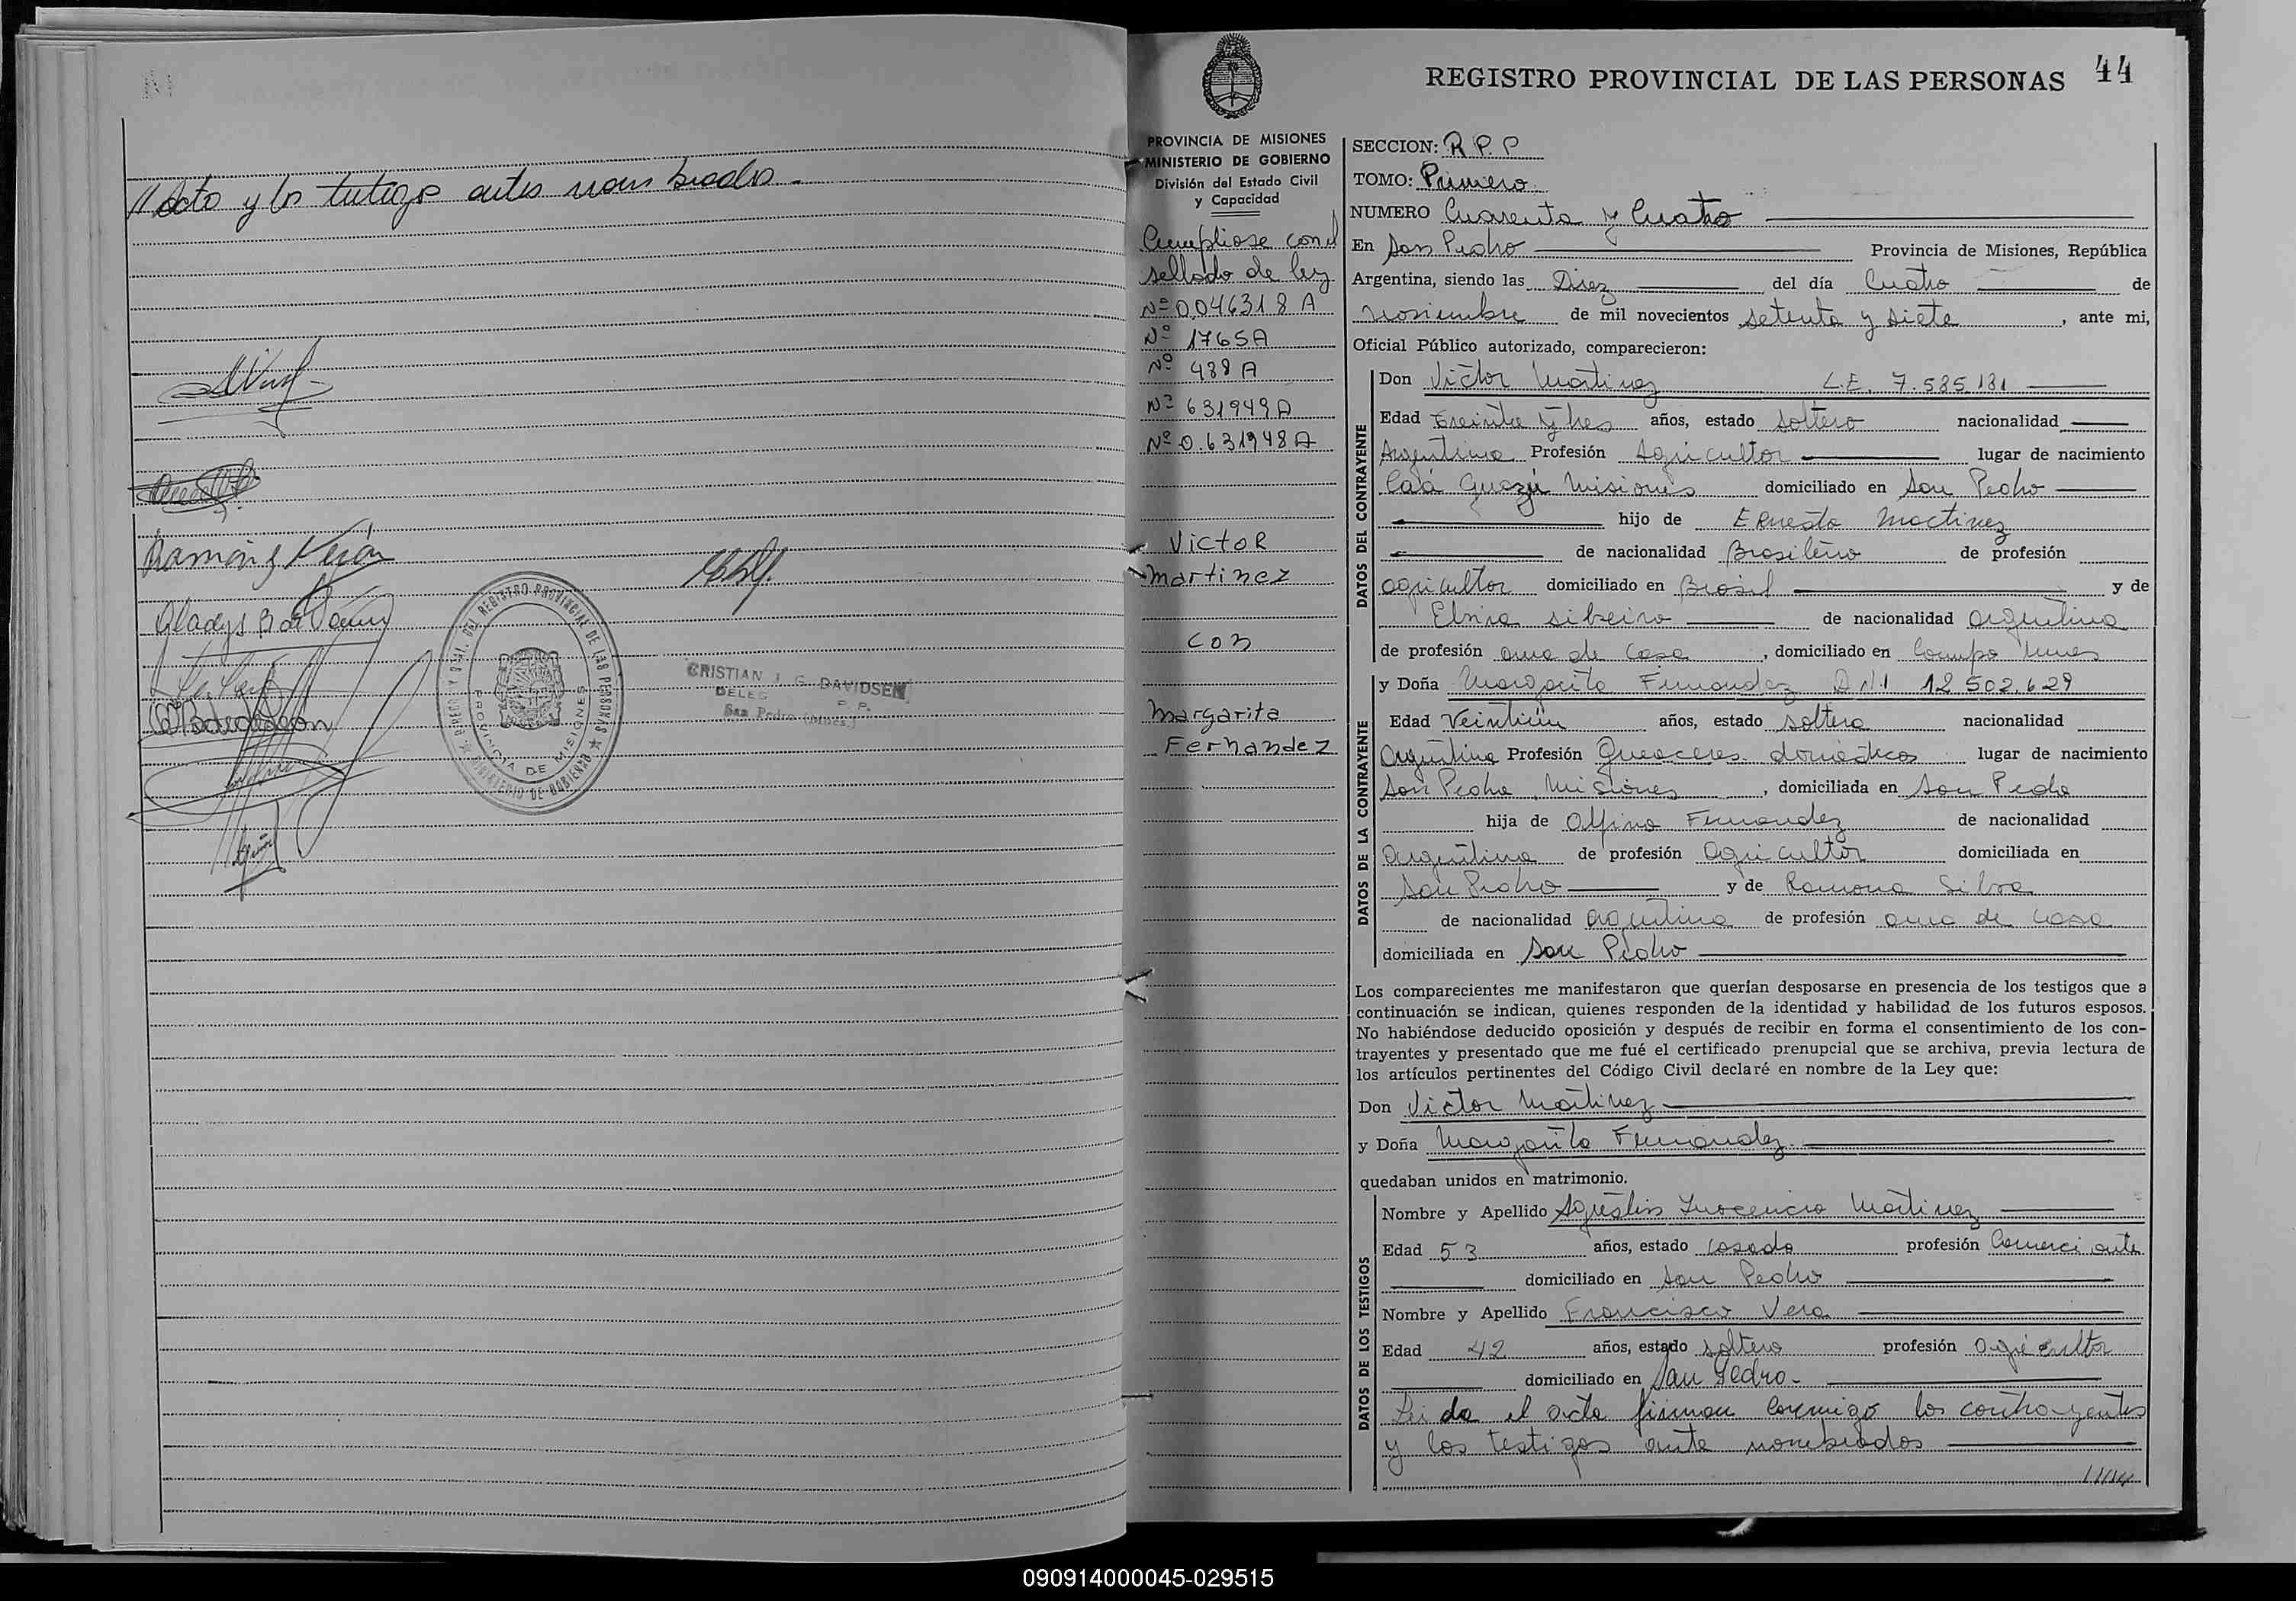 // acto y los testigos antes nombrados.-
Ramón
Gladys B de
REGISTRO PROVINCIAL DE LAS PERSONAS
MINISTERIO DE GOBIERNO
PROVINCIA DE MISIONES
CRISTIAN J. G. DAVIDSEN
DELEG
R. P. P.
San Pedro (Mnes.)
44
REGISTRO PROVINCIAL DE LAS PERSONAS
PROVINCIA DE MISIONES
MINISTERIO DE GOBIERNO
División del Estado Civil
y Capacidad
Cumpliose con el
sellado de ley
Nº 0.046318 A
Nº 1765A
Nº 488 A
Nº 631949A
Nº 0.631948A
Victor
Martinez
con
Margarita
Fernandez
SECCION: R.P.P
TOMO: Primero.
NUMERO Cuarenta y Cuatro
En San Pedro Provincia de Misiones, República
Argentina, siendo las Diez del día Cuatro de
noviembre de mil novecientos setenta y siete, ante mi,
Oficial Público autorizado, comparecieron:
DATOS DEL CONTRAYENTE
Don Victor Martinez L.E. 7.585.181
Edad treinta y tres años, estado soltero nacionalidad
Argentina Profesión Agricultor lugar de nacimiento
Caá Guazú Misiones domiciliado en San Pedro
hijo de Ernesto Martinez
de nacionalidad Brasileño de profesión
agricultor domiciliado en Brasil y de
Elvira de nacionalidad argentina
de profesión ama de casa, domiciliado en Campo
DATOS DE LA CONTRAYENTE
y Doña Margarita Fernandez D.N.I 12.502.629
Edad Veintiún años, estado soltera nacionalidad
Argentina Profesión Queaceres domésticos lugar de nacimiento
San Pedro, Misiones, domiciliada en San Pedro
hija de Alfino Fernandez de nacionalidad
argentina de profesión agricultor domiciliada en
San Pedro y de Ramona Silva
de nacionalidad argentina de profesión ama de casa
domiciliada en San Pedro
Los comparecientes me manifestaron que querían desposarse en presencia de los testigos que a
continuación se indican, quienes responden de la identidad y habilidad de los futuros esposos.
No habiéndose deducido oposición y después de recibir en forma el consentimiento de los con-
trayentes y presentado que me fué el certificado prenupcial que se archiva, previa lectura de
los artículos pertinentes del Código Civil declaré en nombre de la Ley que:
Don Victor Martinez
y Doña Margarita Fernandez
quedaban unidos en matrimonio.
DATOS DE LOS TESTIGOS
Nombre y Apellido Agustin Inocencio Martinez
Edad 53 años, estado casado profesión Comerciante
domiciliado en San Pedro
Nombre y Apellido Francisco Vera
Edad 42 años, estado soltero profesión agricultor
domiciliado en San Pedro-
Leida el acta firman conmigo los contrayentes
y los testigos ante nombrados
090914000045-029515